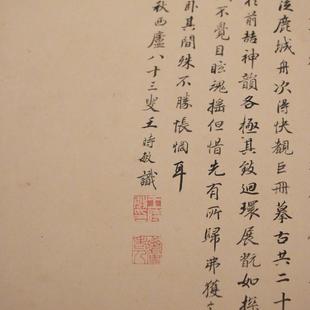 於鹿城舟次得快觀巨冊摹古共二十
於前喆神韻各極其致迴環展翫如探
不覺目眩魂搖但惜先有所歸弗獲
卧其間殊不勝悵惘耳
秋西廬八十三叟王時敏識